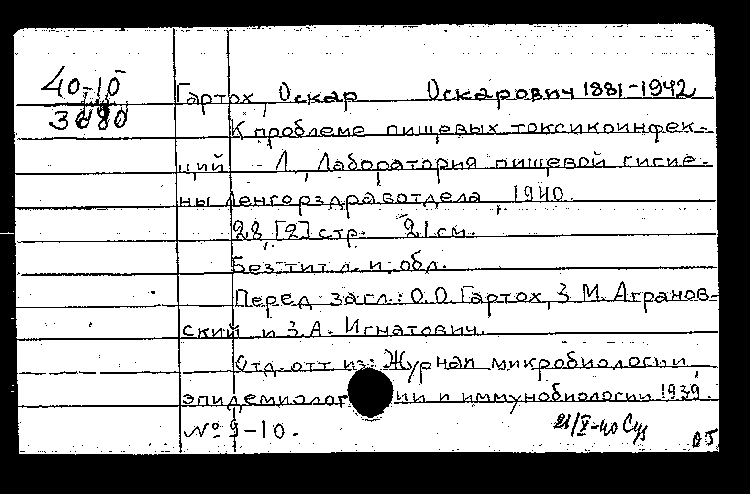 40-10
3680
Гартох, Оскар Оскарович 1881-1942
К проблеме пищевых токсикоинфек-
ций Л., Лаборатория пищевой гигие-
ны Ленгорздравотдела, 1940.
28 [2] стр. 21 см.
Без тит. л. и обл.
Перед загл.: О.О. Гартох, З.М. Агранов-
ский и З.А. Игнатович.
Отд. отт из: Журнал микробиологии,
эпидемиологии и иммунобиологии 1939.
№ 9-10.
21/X-40